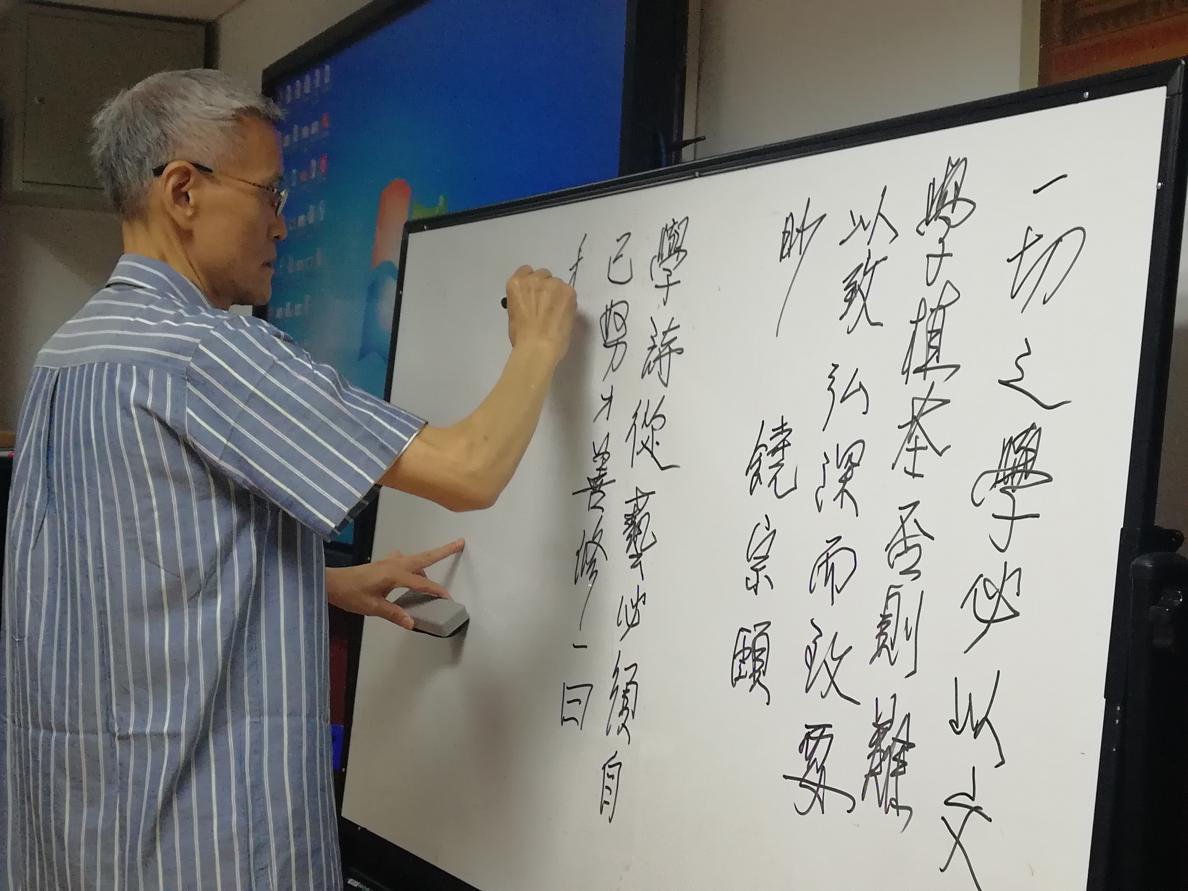 一切之學必以文
學植基否則難
以致弘深而致要
眇
饒宗頤
學詩從藝必須自
己善修一曰